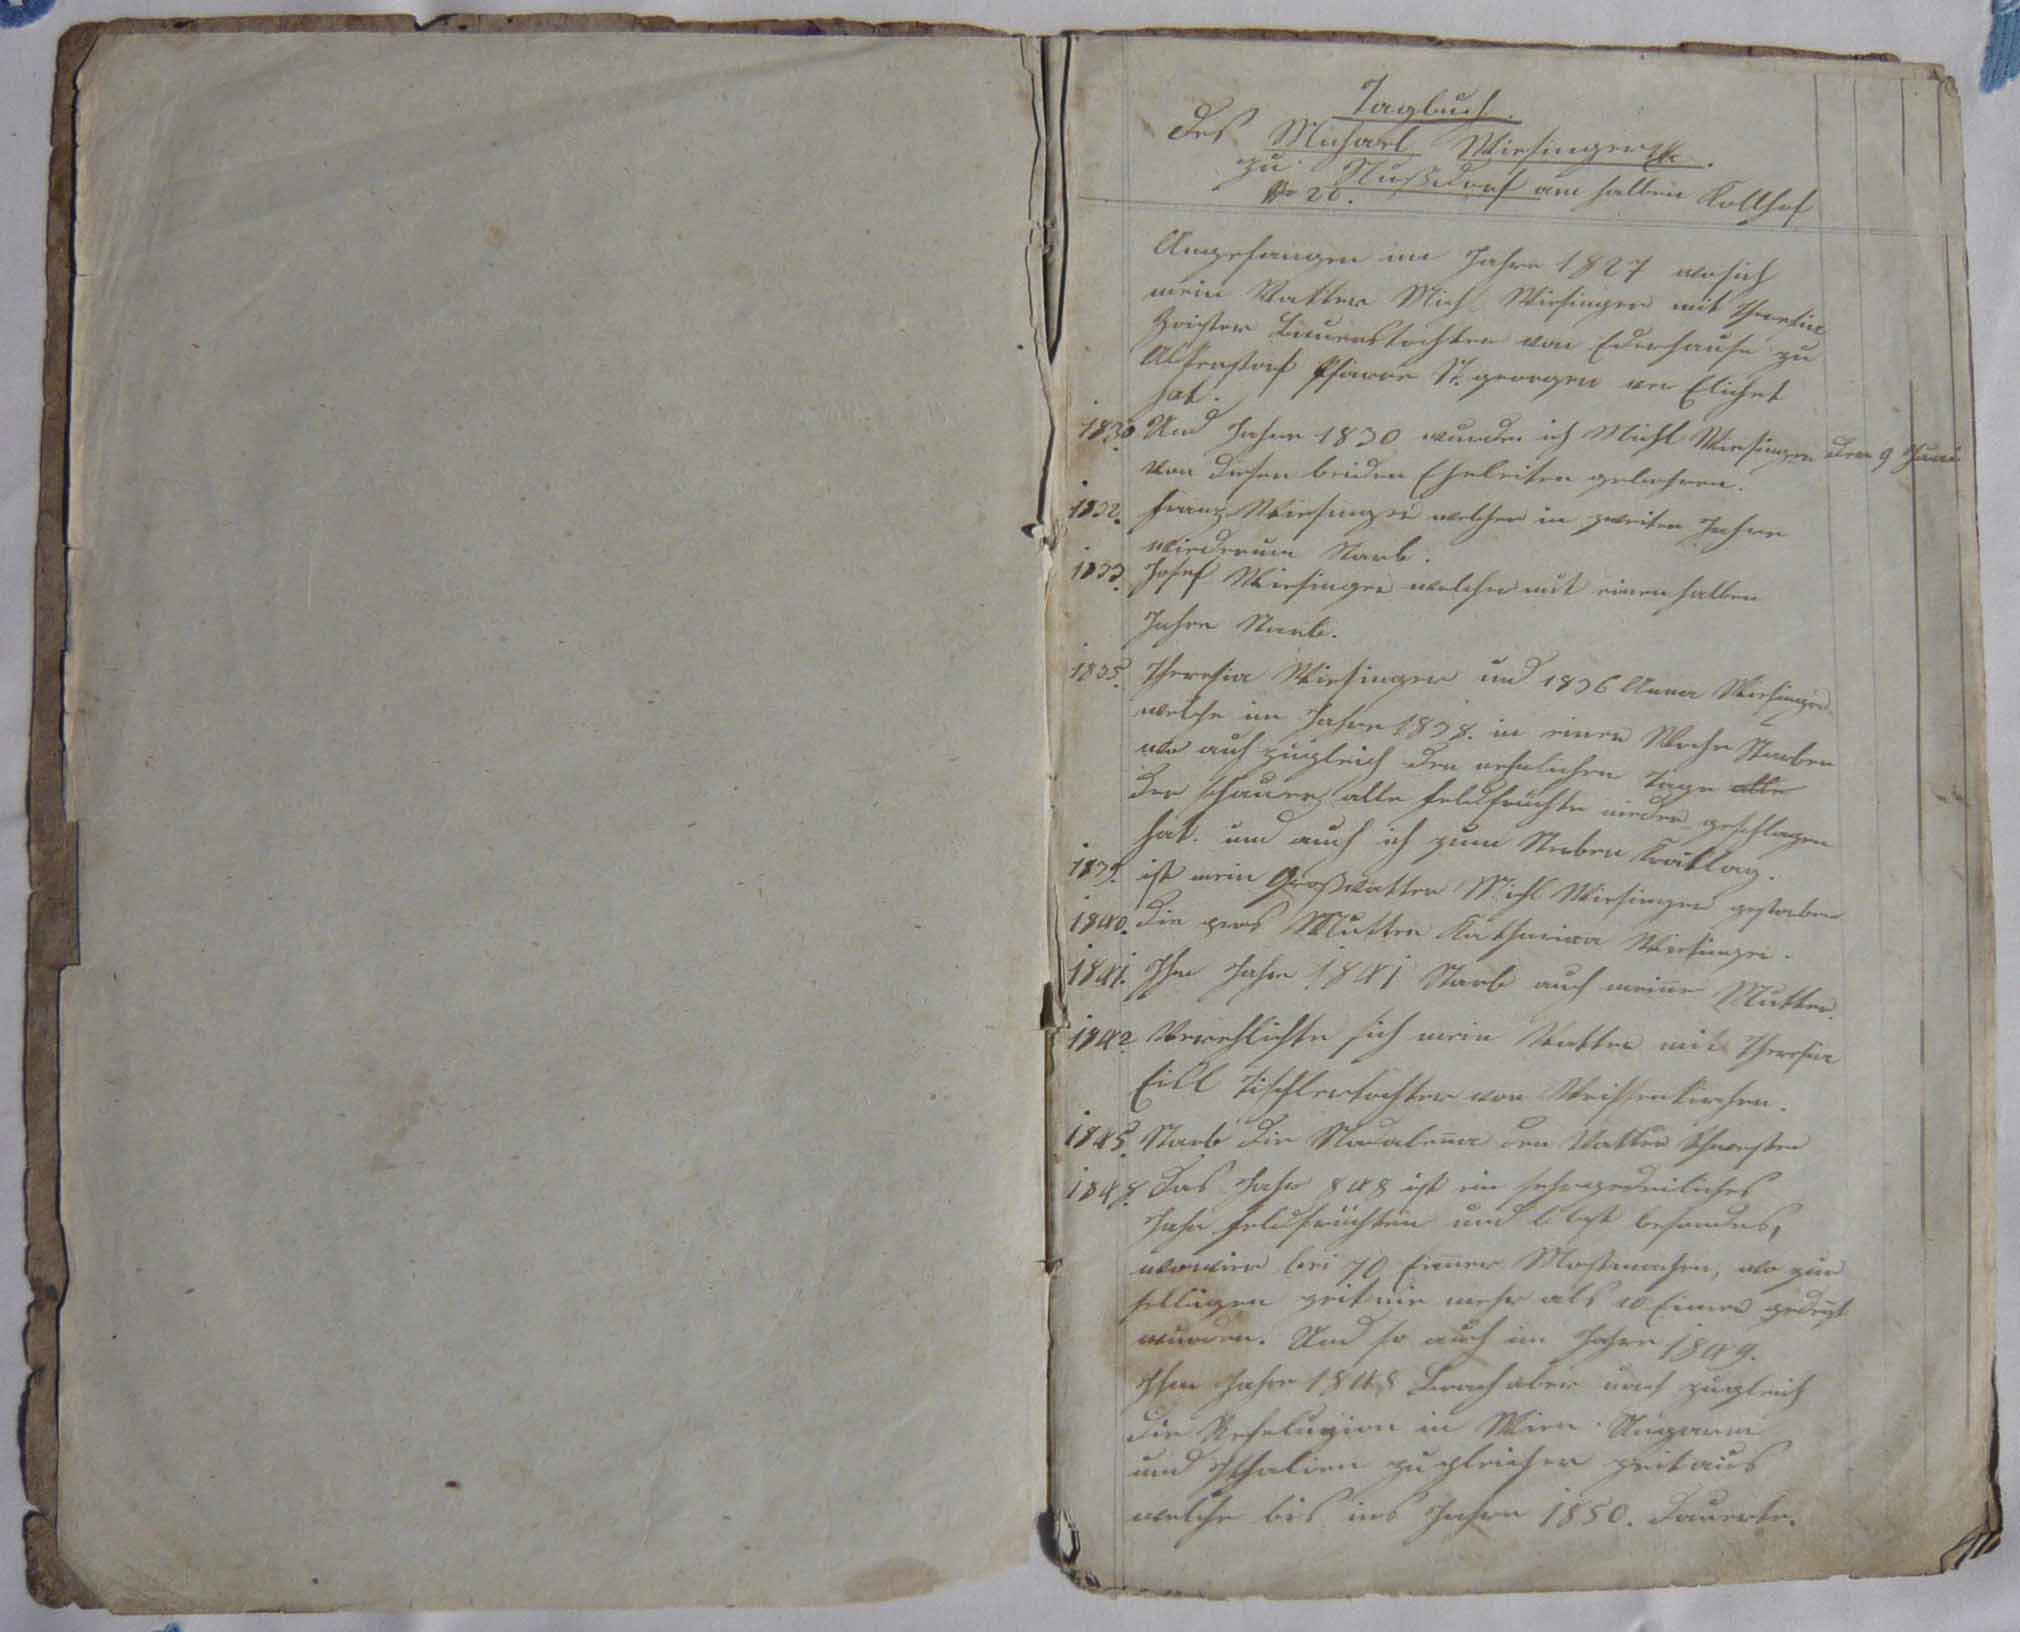 Tagbuch.
des Michael Wiesinger
zu Nußdorf am halben Kollhof
No 20.
Angefangen im Jahre 1827 wo sich
mein Vatter Mich Wiesinger mit Theresia
Bauerstochter von Ederhause zu
Pfarre St. georgen ver Elichet
hat.
1830 Und Jahre 1830 wurde ich Michl Wiesinger den 9 Juni
von diesen beiden Eheleiten gebohren.
1832. Franz Wiesinger welcher in zweiten Jahre
wiederum Starb.
1833. Josef Wiesinger welcher mit einen halben
Jahre Starb.
1835. Theresia Wiesinger und 1836 Anna Wiesinger
welche im Jahre 1838. in einer Woche Starben
wo auch zugleich den nehmlichen Tage alle
der Schauer alle Feldfruchte nieder geschlagen
hat. und auch ich zum Sterben Krank lag.
1839. ist mein Großvatter Michl Wiesinger gestorben
1840. die gros Mutter Katharina Wiesinger.
1841. Ihm Jahre 1841 Starb auch meine Mutter.
1842 Verehlichte sich mein Vatter mit Theresia
Eill Tischlertochter von Weissenkirchen.
1845. Starb die Madalena den Vatter Schwester
1848. Das Jahr 848 ist ein sehr gedeiliches
Jahr Feldfrüchten und Obst besonders,
wo wir bei 70 Eimer Most machen, wo zur
selligen zeit nie mehr als 10 Eimer
wurden. Und so auch im Jahre 1849.
Ihm Jahre 1848 Brach aber auch zugleich
die Refeluzion in Wien Ungarn
und Ithalien zu gleicher zeit aus
welche bis ins Jahre 1850. Dauerte.